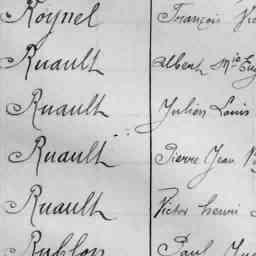 Roynel François
Ruault Albert Mie Eug
Ruault Julien Louis
Ruault Pierre Jean
Ruault Victor henri
Rublon Paul